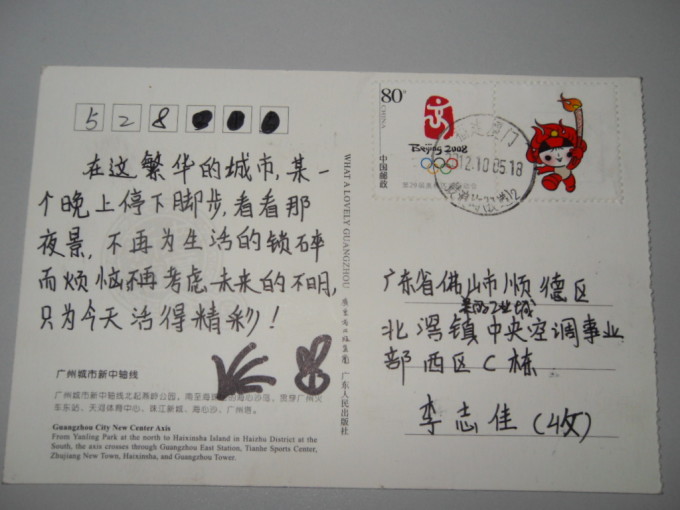 528
在这繁华的城市,某一
个晚上停下脚步,看看那
夜景,不再为生活的锁碎
而烦恼不再考虑未来的不明,
只为今天活得精彩!
广州城市新中轴线
广州城市新中轴线北起燕岭公园,南至海珠区的海心沙岛,贯穿广州火
车东站、天河体育中心、珠江新城、海心沙、广州塔。
Guangzhou City New Center Axis
From Yanling Park at the north to Haixinsha Island in Haizhu District at the
South, the axis crosses through Guangzhou East Station, Tianhe Sports Center,
Zhujiang New Town, Haixinsha, and Guangzhou Tower.
WHAT A LOVELY GUANGZHOU
广东人民出版社
80
CHINA
中国邮政
Beijing 2008
2012.10.05.18
广东省佛山市顺德区
美的工业城
北滘镇中央空调事业
部西区C栋
李志佳(收)